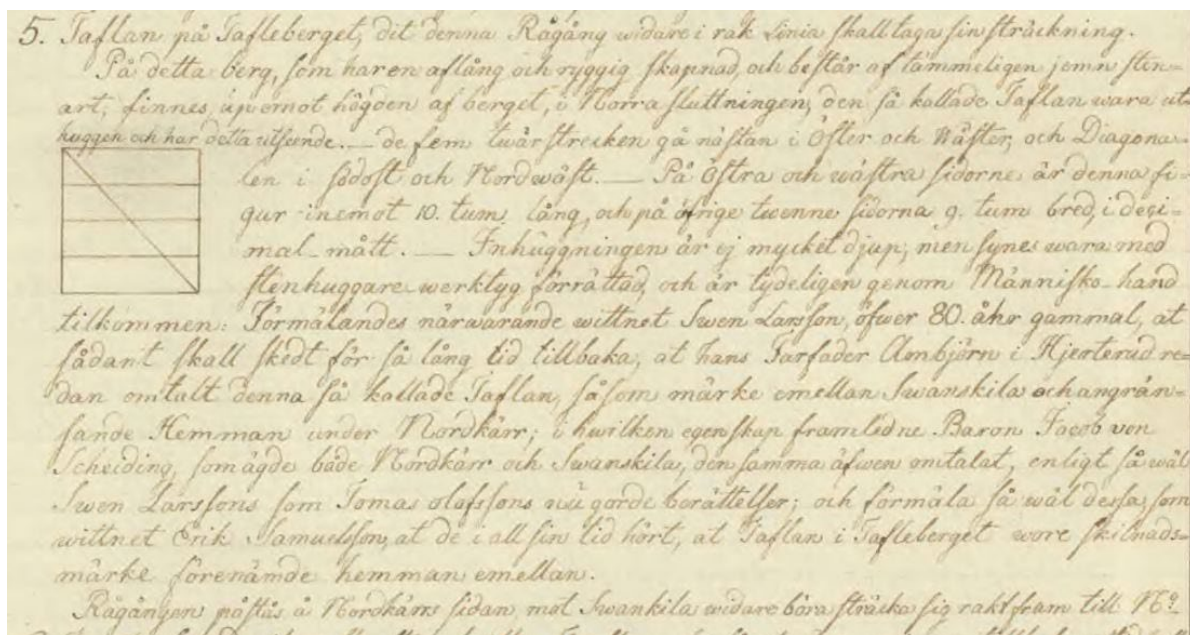 5. Taflan på Tafleberget, dit denna Rågång widare i rak Linia skall taga sin sträckning.
På detta berg, som har en aflång och ryggig skapnad, och består af tämmeligen jemn sten-
art, finnes, up emot högden af berget, i Norra sluttningen, den så kallade Taflan wara ut-
huggen och har detta utseende. — de fem twärstrecken gå nästan i Öster och Wäster, och Diagona-
len i södost och Nordwäst. — På Östra och wästra sidorne är denna fi-
gur inemot 10. tum lång, och på öfrige twenne sidorna 9. tum bred, i desi-
mal-mått. — Inhuggningen är ej mycket djup, men synes wara med
stenhuggare werktyg förrättad, och är tydeligen genom Människo hand
tilkommen: Förmälandes närwarande wittnet Swen Larsson, öfwer 80. åhr gammal, at
sådant skall skedt för så lång tid tillbaka, at hans Farfader Ambjörn i Hjerterud re-
dan omtalt denna så kallade Taflan, såsom märke emellan Swanskila och angrän-
sande Hemman under Nordkärr; i hwilken egenskap framledne Baron Jacob von
Scheiding, som ägde både Nordkärr och Swanskila, den samma äfwen omtalat, enligt så wäl
Swen Larssons som Tomas Olofssons nu gorde berättelser; och förmäla så wäl dessa, som
wittnet Erik Samuelsson, at de i all sin tid hört, at Taflan i Tafleberget wore skilnads-
märke förenämde hemman emellan.
Rågången påstås å Nordkärrs sidan mot Swankila widare böra sträcka sig rakt fram till No.